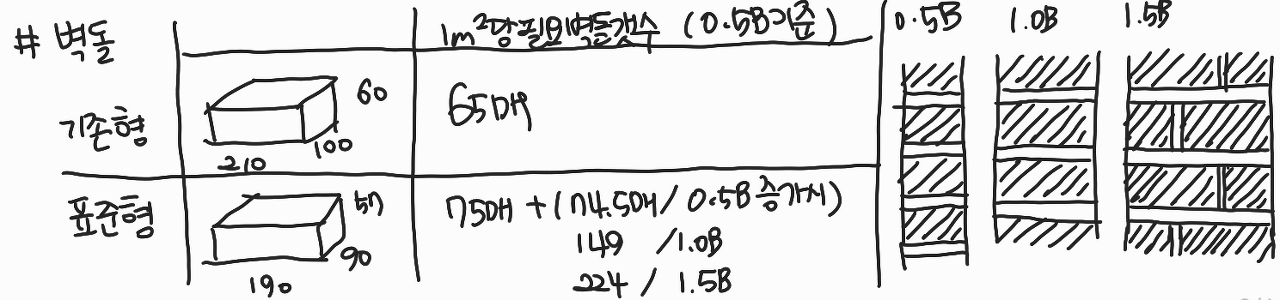 # 벽돌
1m²당 필요벽돌갯수 (0.5B기준)
0.5B 1.0B 1.5B
기존형
60
210
100
65매
표준형
57
190
90
75매 + (74.5매 / 0.5B 증가시)
149 / 1.0B
224 / 1.5B